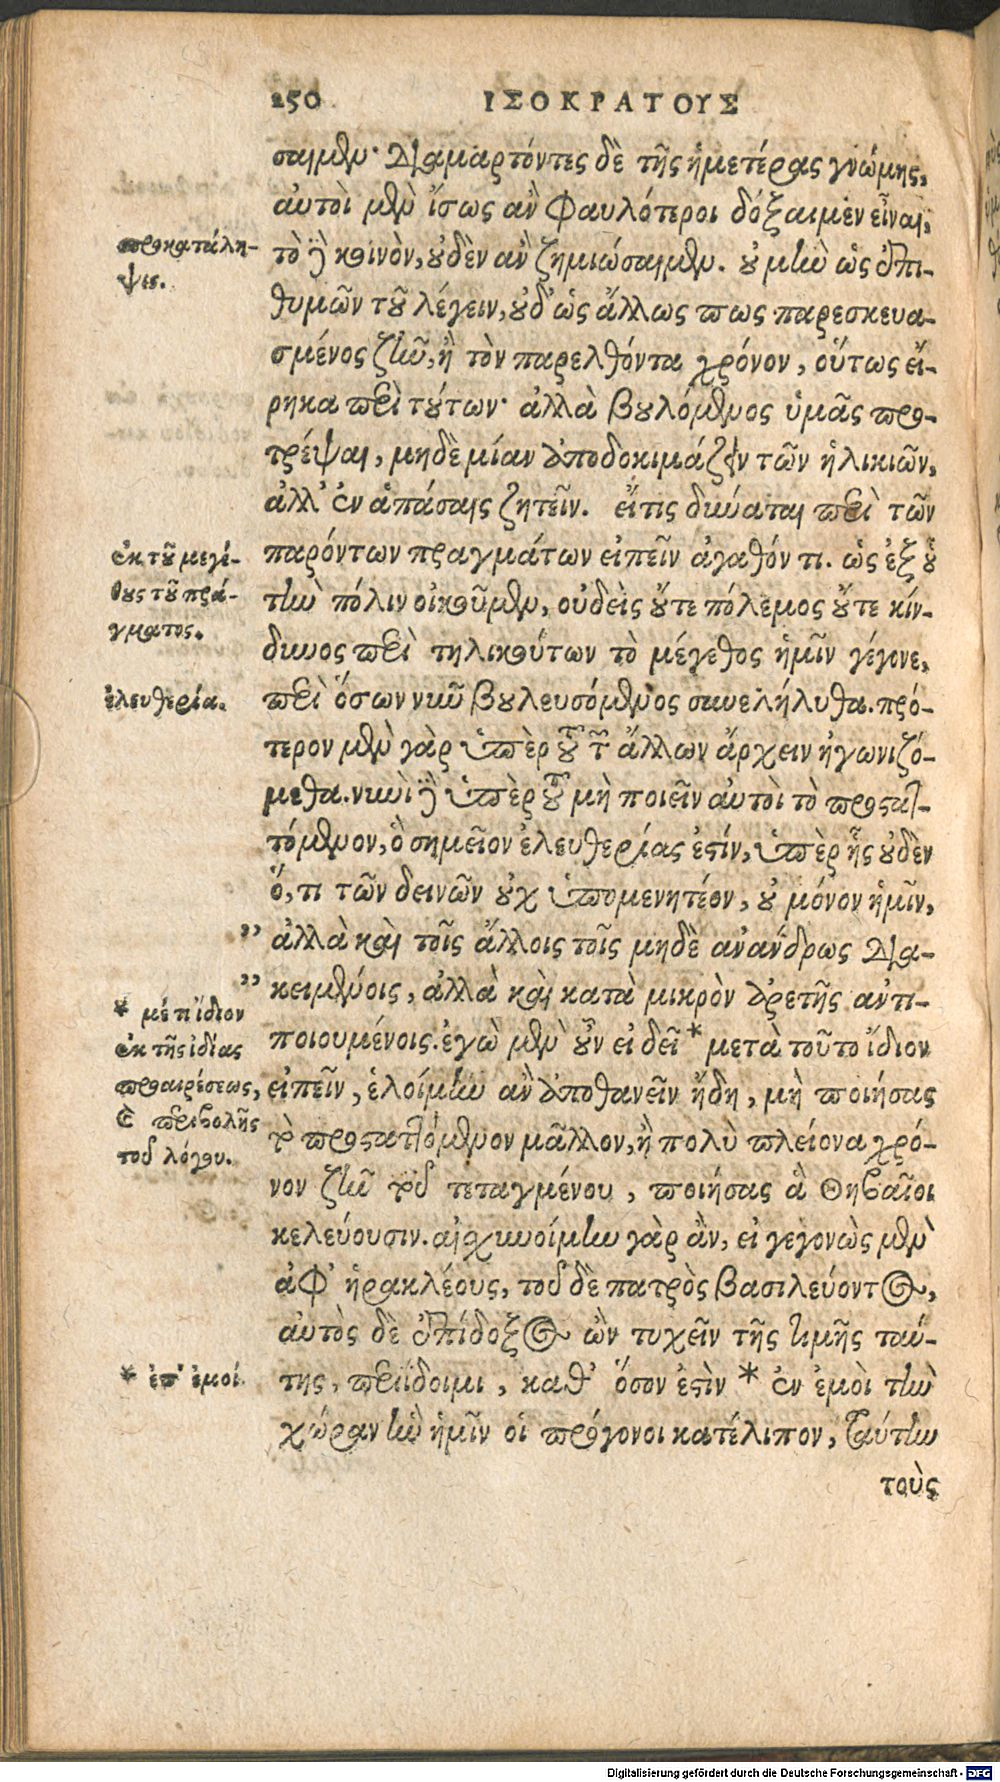 250 ΙΣΟΚΡΑΤΟΥΣ
σαιμεν· διαμαρτόντες δὲ τῆς ἡμετέρας γνώμης,
αὐτοὶ μὲν ἴσως ἂν φαυλότεροι δόξαιμεν εἶναι,
τὸ δὲ κοινὸν, οὐδὲν ἂν ζημιώσαιμεν. οὐ μὴν ὡς ἐπι-
θυμῶν τοῦ λέγειν, οὐδ' ὡς ἄλλως πως παρεσκευα-
σμένος ζῆν, ἢ τὸν παρελθόντα χρόνον, οὕτως εἴ-
ρηκα περὶ τούτων· ἀλλὰ βουλόμενος ὑμᾶς προ-
τρέψαι, μηδὲ μίαν ἀποδοκιμάζειν τῶν ἡλικιῶν,
ἀλλ' ἐν ἁπάσαις ζητεῖν. εἴτις δύναται περὶ τῶν
παρόντων πραγμάτων εἰπεῖν ἀγαθόν τι. ὡς ἐξ οὗ
τὴν πόλιν οἰκοῦμεν, οὐδεὶς οὔτε πόλεμος οὔτε κίν-
δυνος περὶ τηλικούτων τὸ μέγεθος ἡμῖν γέγονε,
περὶ ὅσων νῦν βουλευσόμενος συνελήλυθα. πρό-
τερον μὲν γὰρ ὑπὲρ τοῦ τῶν ἄλλων ἄρχειν ἠγωνιζό-
μεθα. νυνὶ δὲ ὑπὲρ τοῦ μὴ ποιεῖν αὐτοὶ τὸ προστατ-
τόμενον, ὃ σημεῖον ἐλευθερίας ἐστίν, ὑπὲρ ἧς οὐδὲν
ὅ, τι τῶν δεινῶν οὐχ ὑπομενητέον, οὐ μόνον ἡμῖν,
" ἀλλὰ καὶ τοῖς ἄλλοις τοῖς μηδὲ ἀνάνδρως δια-
" κειμένοις, ἀλλὰ καὶ κατὰ μικρὸν ἀρετῆς ἀντι-
ποιουμένοις. ἐγὼ μὲν οὖν εἰ δεῖ * μετὰ τοῦτο ἴδιον
εἰπεῖν, ἑλοίμην ἂν ἀποθανεῖν ἤδη, μὴ ποιήσας
τὸ προσταττόμενον μᾶλλον, ἢ πολὺ πλείονα χρό-
νον ζῆν τοῦ τεταγμένου, ποιήσας ἃ Θηβαῖοι
κελεύουσιν. αἰσχυνοίμην γὰρ ἂν, εἰ γεγονὼς μὲν
ἀφ' ἡρακλέους, τοῦ δὲ πατρὸς βασιλεύοντος,
αὐτὸς δὲ ἐπίδοξος ὢν τυχεῖν τῆς τιμῆς ταύ-
της, περιΐδοιμι, καθ' ὅσον ἐστὶν * ἐν ἐμοὶ τὴν
χώραν ἣν ἡμῖν οἱ πρόγονοι κατέλιπον, ταύτην
τοὺς
προκατάλη-
ψις.
ἐκ τοῦ μεγέ-
θους τοῦ πρά-
γματος.
ἐλευθερία.
* μέ τι ἴδιον
ἐκ τῆς ἰδίας
προαιρέσεως,
τοῦ λόγου.
* ἐπ' ἐμοί.
Digitalisierung gefördert durch die Deutsche Forschungsgemeinschaft - DFG